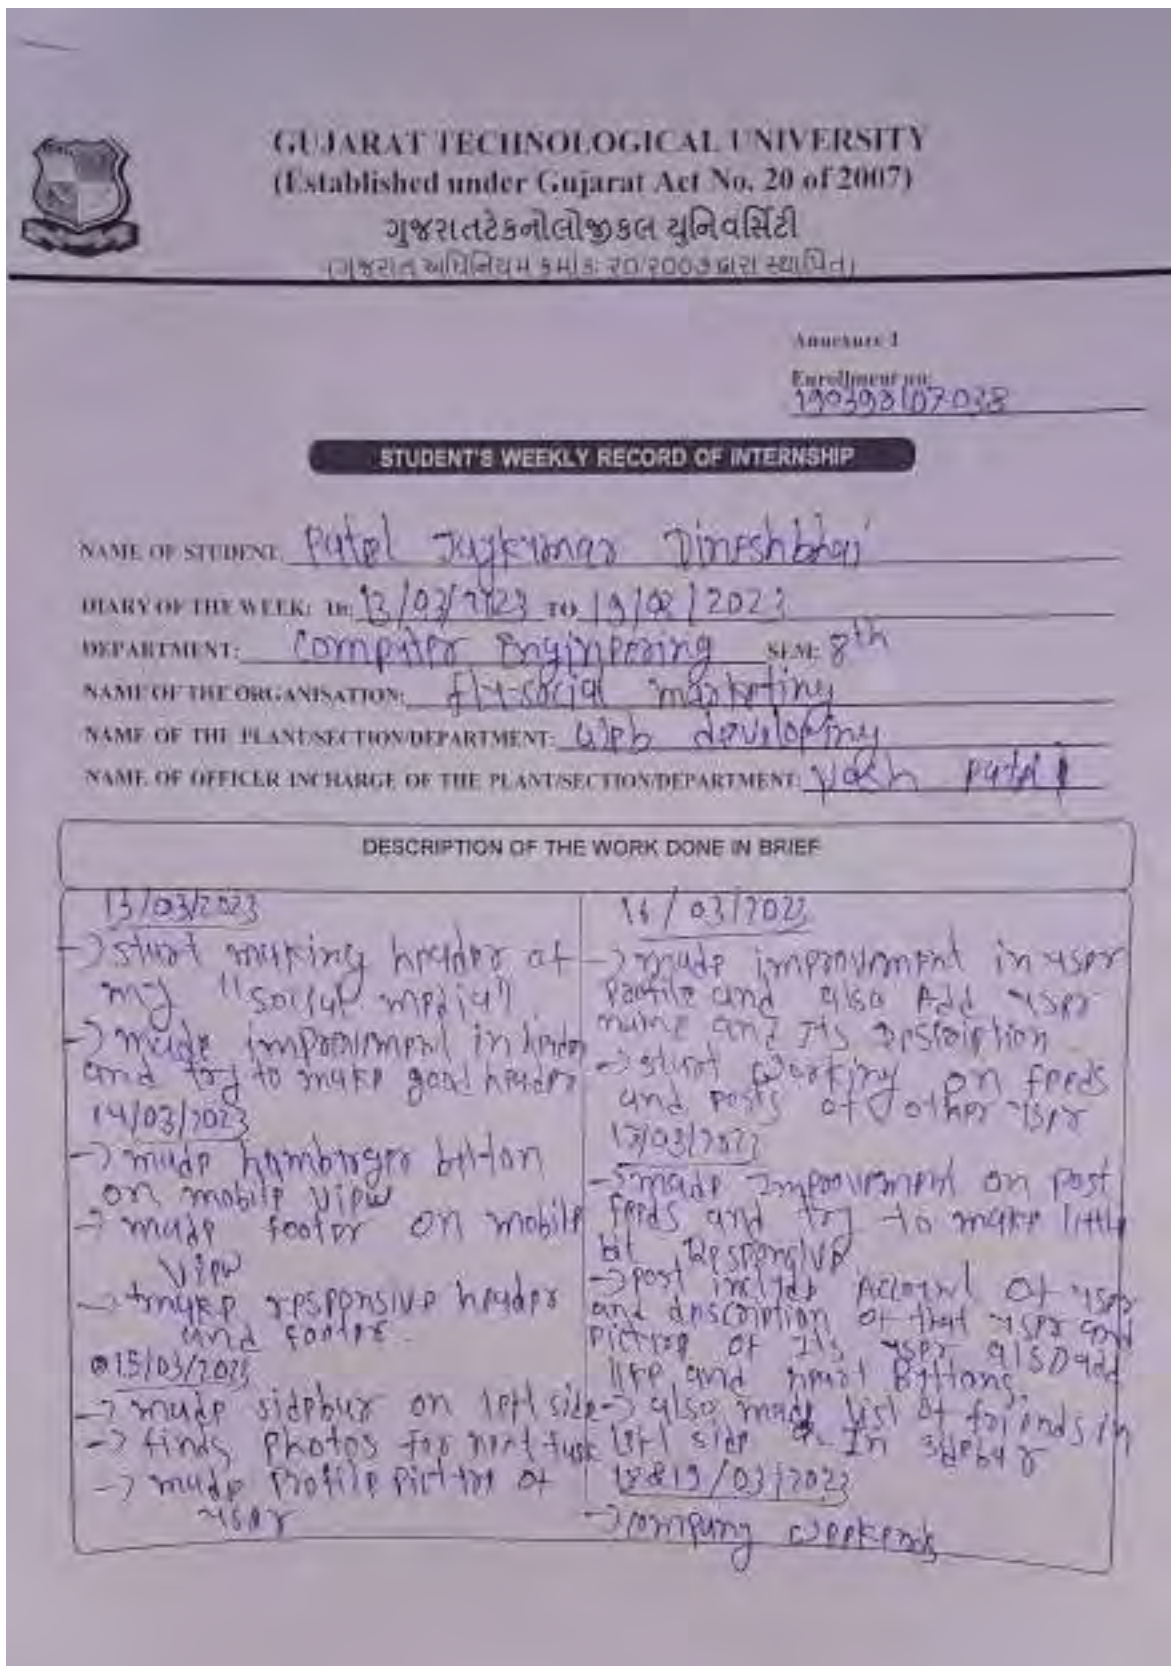 GUJARAT TECHNOLOGICAL UNIVERSITY
(Established under Gujarat Act No. 20 of 2007)
ગુજરાતટેકનોલોજીકલ યુનિવર્સિટી
(ગુજરાત અધિનિયમ ક્રમાંક: ૨૦/૨૦૦૭ દ્વારા સ્થાપિત)
Annexure 1
Enrollment no:
STUDENT'S WEEKLY RECORD OF INTERNSHIP
NAME OF STUDENT: Patel Jaykumar Dineshbhai
DIARY OF THE WEEK: 13/03/2023 TO 19/03/2023
DEPARTMENT: Computer Engineering SEM: 8th
NAME OF THE ORGANISATION: fly-social marketing
NAME OF THE PLANT/SECTION/DEPARTMENT: web developing
NAME OF OFFICER INCHARGE OF THE PLANT/SECTION/DEPARTMENT: Yash Patel
DESCRIPTION OF THE WORK DONE IN BRIEF
13/03/2023
-> start making header of
my "social media"
-> made improvement in header
and try to make good header
14/03/2023
-> made hamburger button
on mobile view
-> made footer on mobile
view
-> make responsive header
and footer.
15/03/2023
-> made sidebar on left side
-> finds photos for next task
-> made profile picture of
user
16/03/2023
-> made improvement in user
profile and also Add user
name and Its Description
-> start working on feeds
and posts of other user
17/03/2023
-> made Improvement on post
feeds and try to make little
bit Responsive
-> post include Account of user
and description of that user and
picture of Its user also add
like and heart Buttons.
-> also made list of friends in
left side In sidebar
18&19/03/2023
-> company weekends